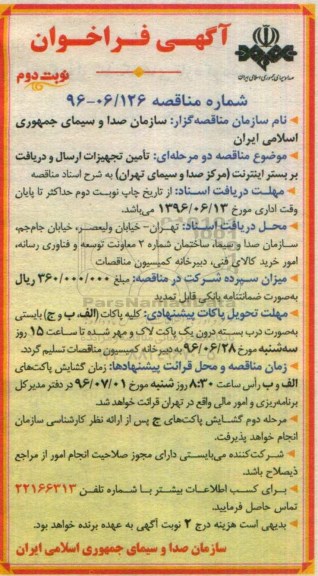 آگهی فراخوان
صدا و سیمای جمهوری اسلامی ایران
نوبت دوم
شماره مناقصه ۹۶-۰۶/۱۲۶
نام سازمان مناقصه‌گزار: سازمان صدا و سیمای جمهوری
اسلامی ایران
موضوع مناقصه دو مرحله‌ای: تأمین تجهیزات ارسال و دریافت
بر بستر اینترنت (مرکز صدا و سیمای تهران) به شرح اسناد مناقصه
مهلت دریافت اسناد: از تاریخ چاپ نوبت دوم حداکثر تا پایان
وقت اداری مورخ ۱۳۹۶/۰۶/۱۳ می‌باشد.
محل دریافت اسناد: تهران- خیابان ولیعصر، خیابان جام‌جم،
سازمان صدا و سیما، ساختمان شماره ۲ معاونت توسعه و فناوری رسانه،
امور خرید کالای فنی، دبیرخانه کمیسیون مناقصات
میزان سپرده شرکت در مناقصه: مبلغ ۳۶۰/۰۰۰/۰۰۰ ریال
به‌صورت ضمانتنامه بانکی قابل تمدید
مهلت تحویل پاکات پیشنهادی: کلیه پاکات (الف، ب و ج) بایستی
به‌صورت درب بسته درون یک پاکت لاک و مهر شده تا ساعت ۱۵ روز
سه‌شنبه مورخ ۹۶/۰۶/۲۸ به دبیرخانه کمیسیون مناقصات تسلیم گردد.
زمان مناقصه و محل قرائت پیشنهادها: زمان گشایش پاکت‌های
الف و ب رأس ساعت ۸:۳۰ روز شنبه مورخ ۹۶/۰۷/۰۱ در دفتر مدیرکل
برنامه‌ریزی و امور مالی واقع در تهران قرائت خواهد شد.
مرحله دوم گشایش پاکت‌های ج پس از ارائه نظر کارشناسی سازمان
انجام خواهد پذیرفت.
شرکت‌کننده می‌بایستی دارای مجوز صلاحیت انجام امور از مراجع
ذیصلاح باشد.
برای کسب اطلاعات بیشتر با شماره تلفن ۲۲۱۶۶۳۱۳
تماس حاصل فرمایید.
بدیهی است هزینه درج ۲ نوبت آگهی به عهده برنده خواهد بود.
سازمان صدا و سیمای جمهوری اسلامی ایران